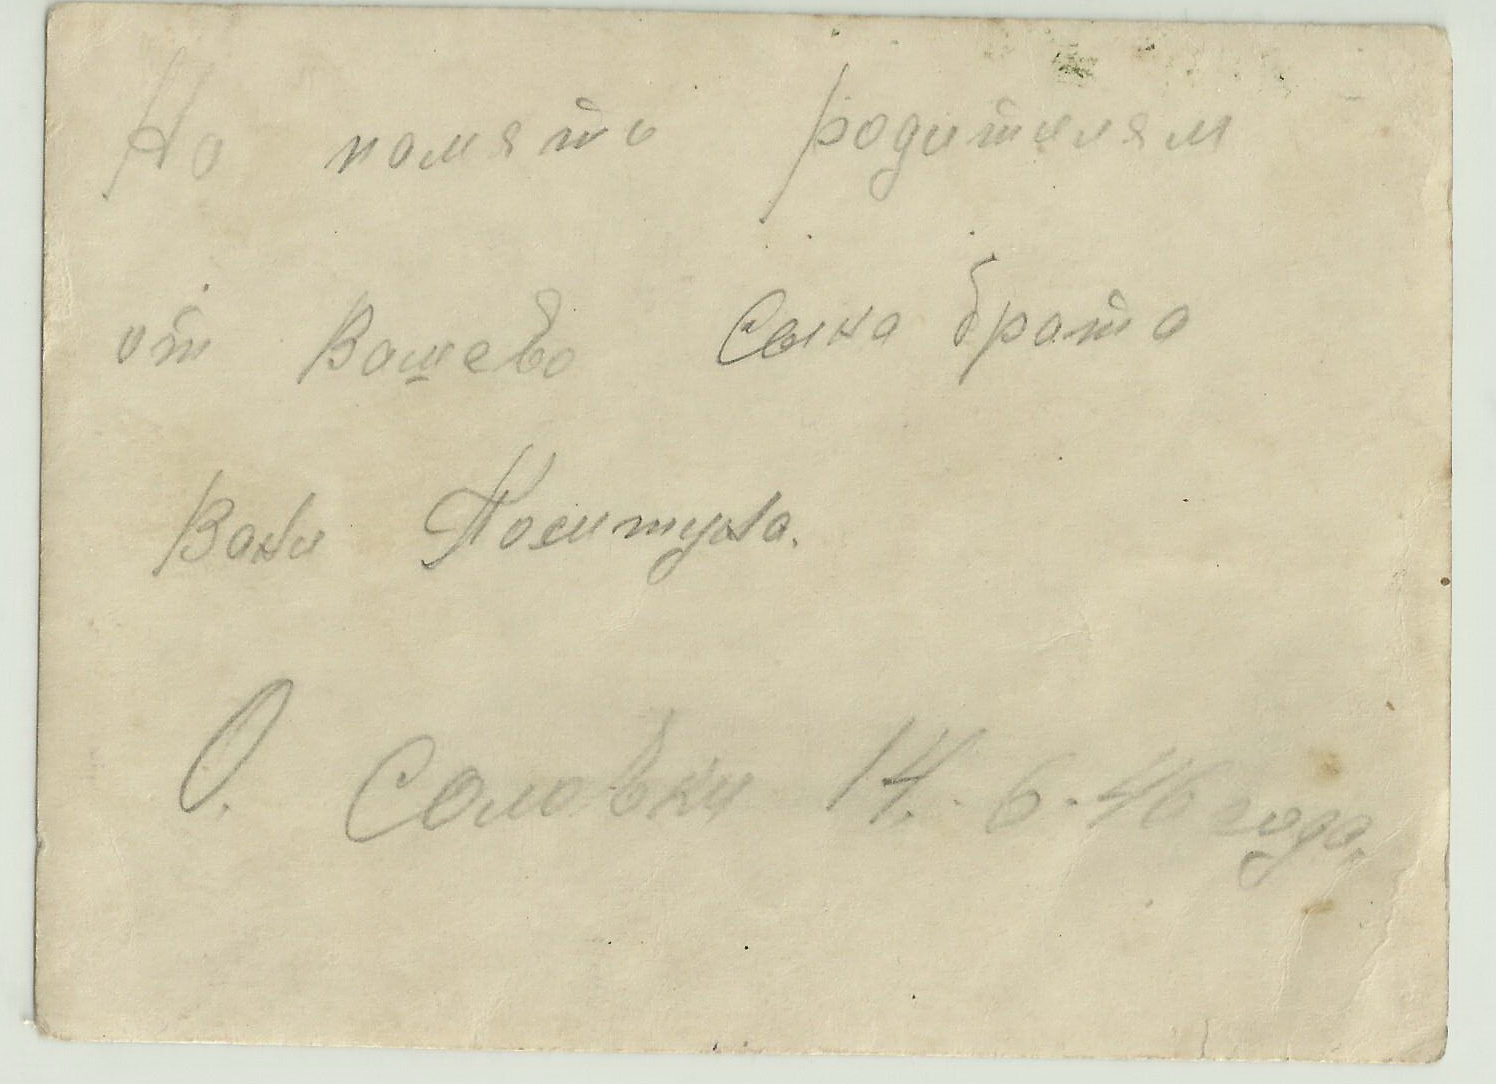 На память родителям
от Вашево Сына брата
Вани
О. Соловки 14. 6. 46 года.